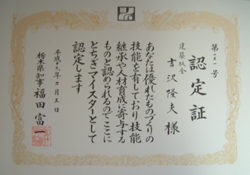 認定証
建築板金
吉沢隆夫 様
あなたは優れたものづくりの
技能を有しており技能
継承や人材育成に寄与する
ものと認められるのでここに
とちぎマイスターとして
認定します
栃木県知事 福田富一